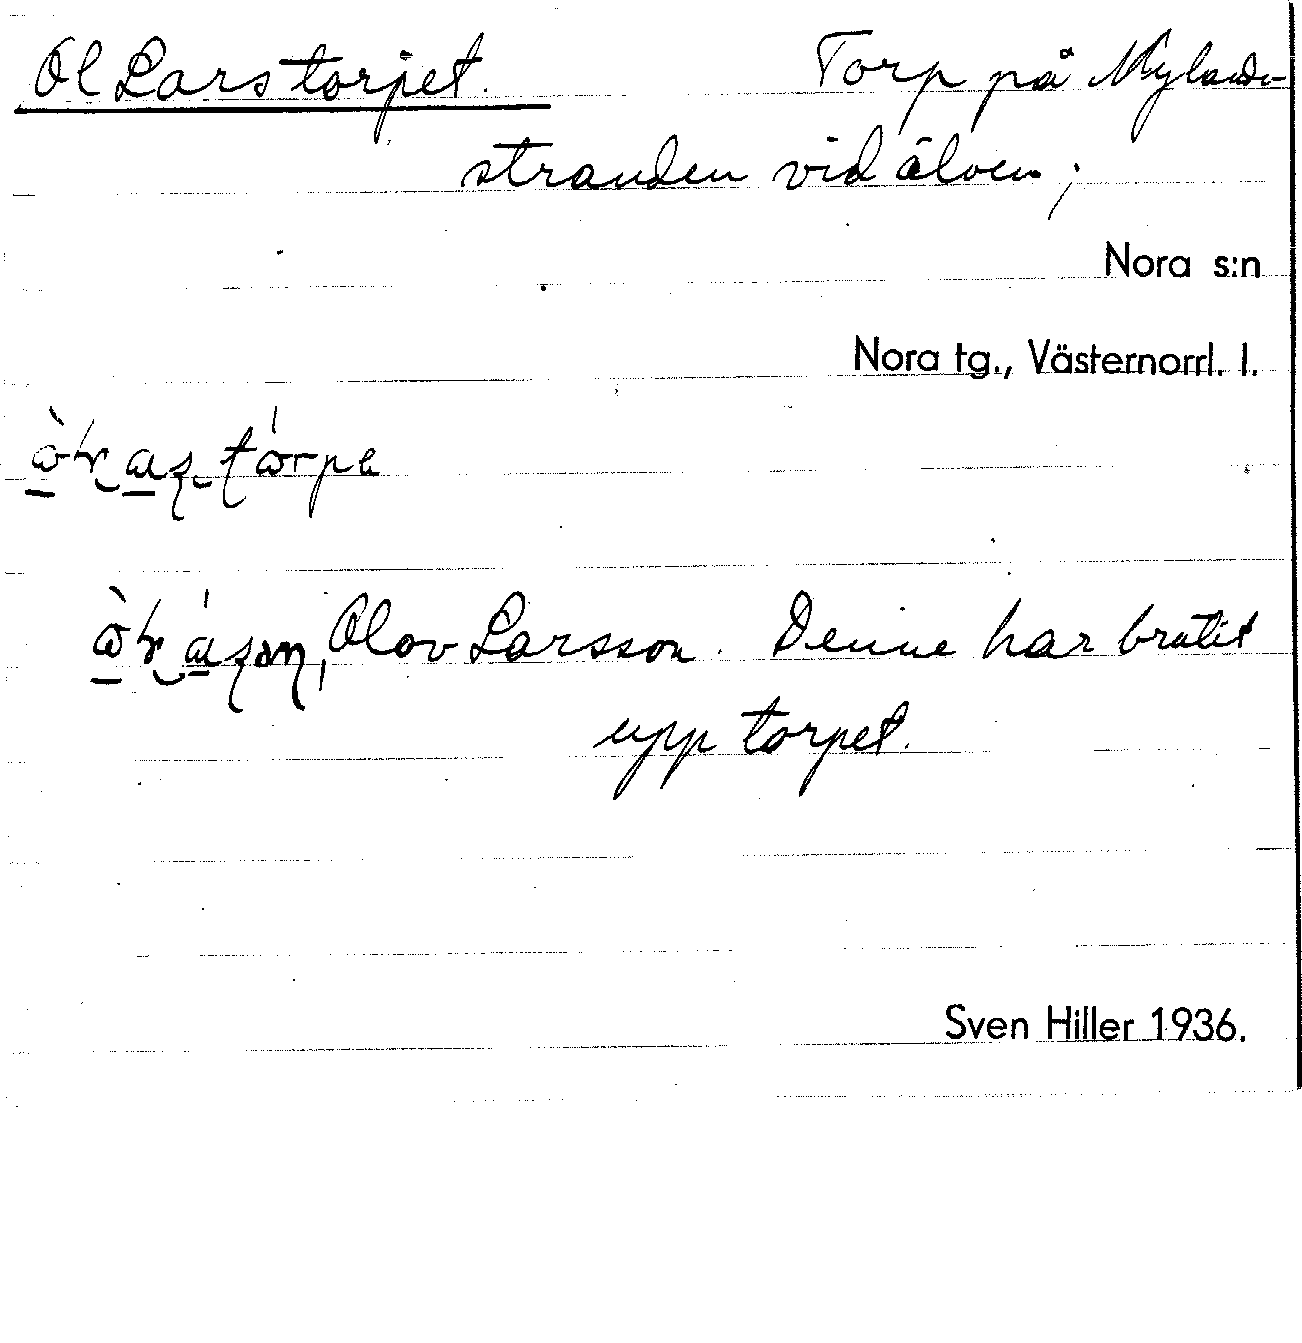 Ol Larstorpet. Torp på Nylands-
stranden vid älven;
Nora s:n
Nora tg., Västernorrl. l.
Olov Larsson. Denne har brutit
upp torpet.
Sven Hiller 1936.